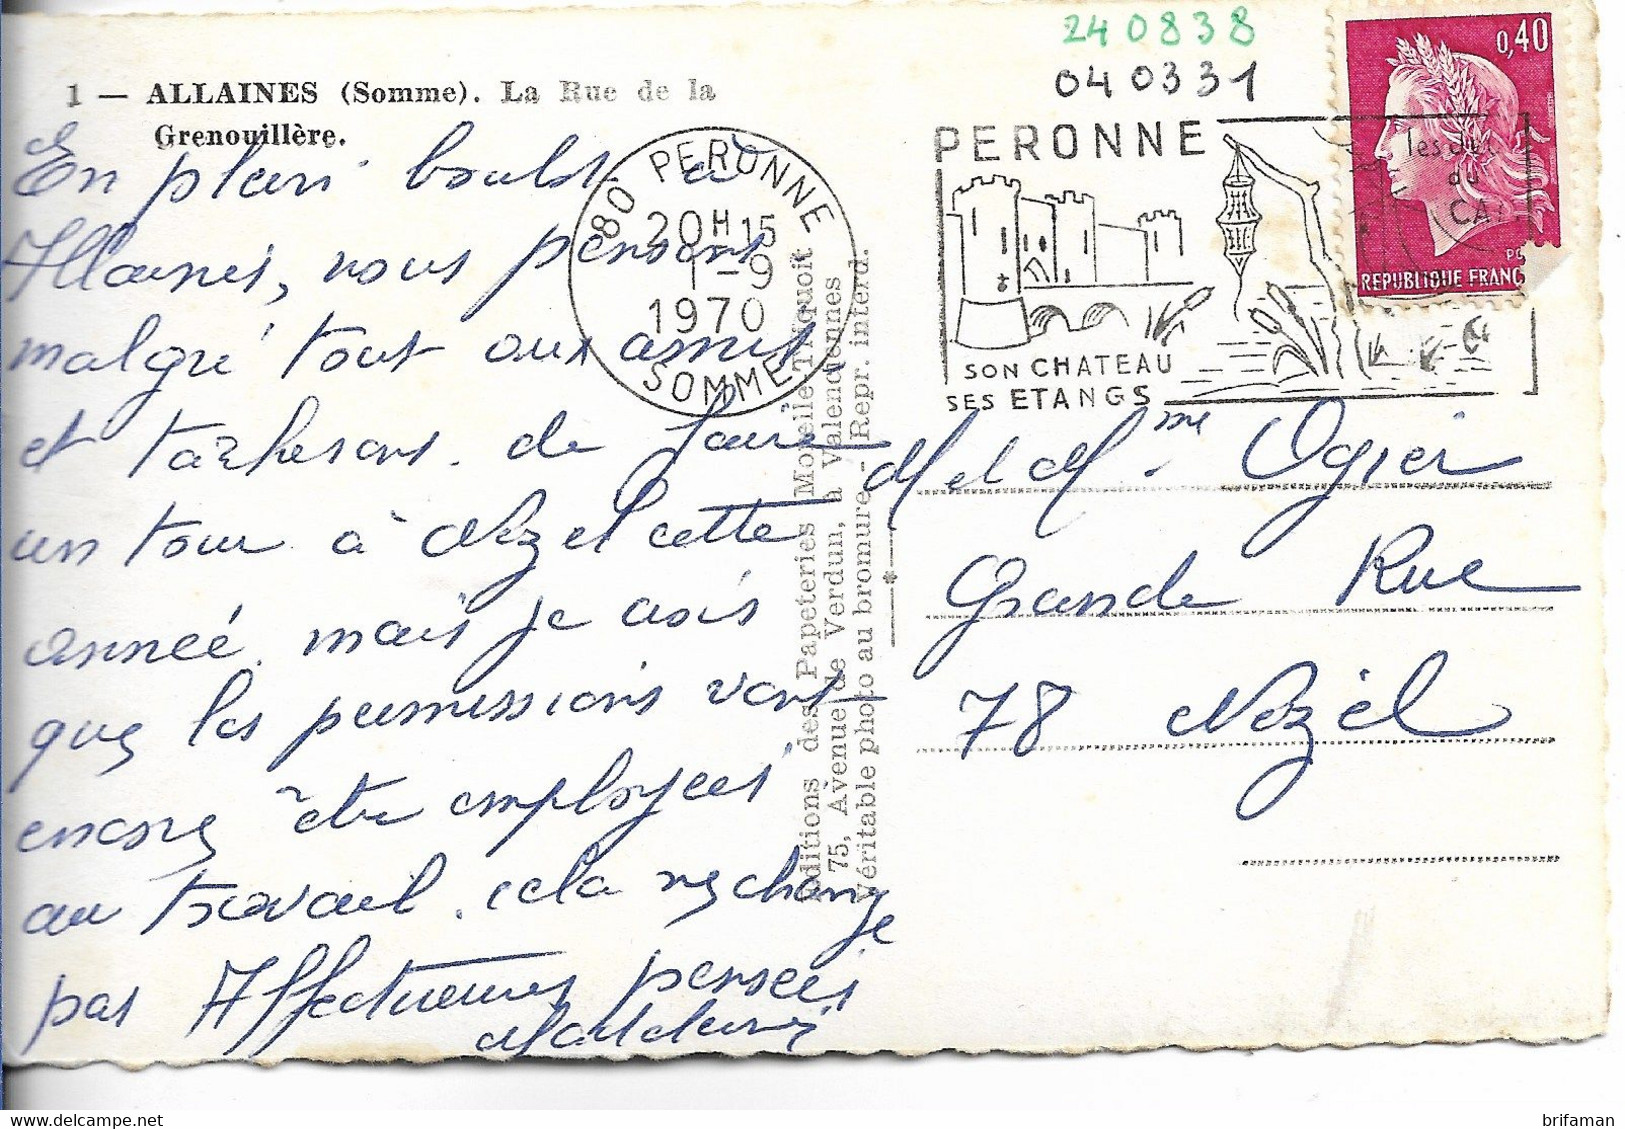 240838
040331
1 — ALLAINES (Somme). La Rue de la
Grenouillère.
80 PERONNE
20H15
1-9
1970
SOMME
PERONNE
SON CHATEAU
SES ETANGS
0,40
REPUBLIQUE FRANC
En plein boulot à
Allaines, nous pensons
malgré tout aux amis
et tacherons de faire
un tour à Nézel cette
année, mais je crois
que les permissions vont
encore être employées
au travail. cela ne change
pas Affectueuses pensées
M et Mme Ogier
Grande Rue
78 Nézel
Editions des Papeteries Moreile-Tifquoit
75, Avenue de Verdun, à Valenciennes
Véritable photo au bromure - Repr. interd.
brifaman